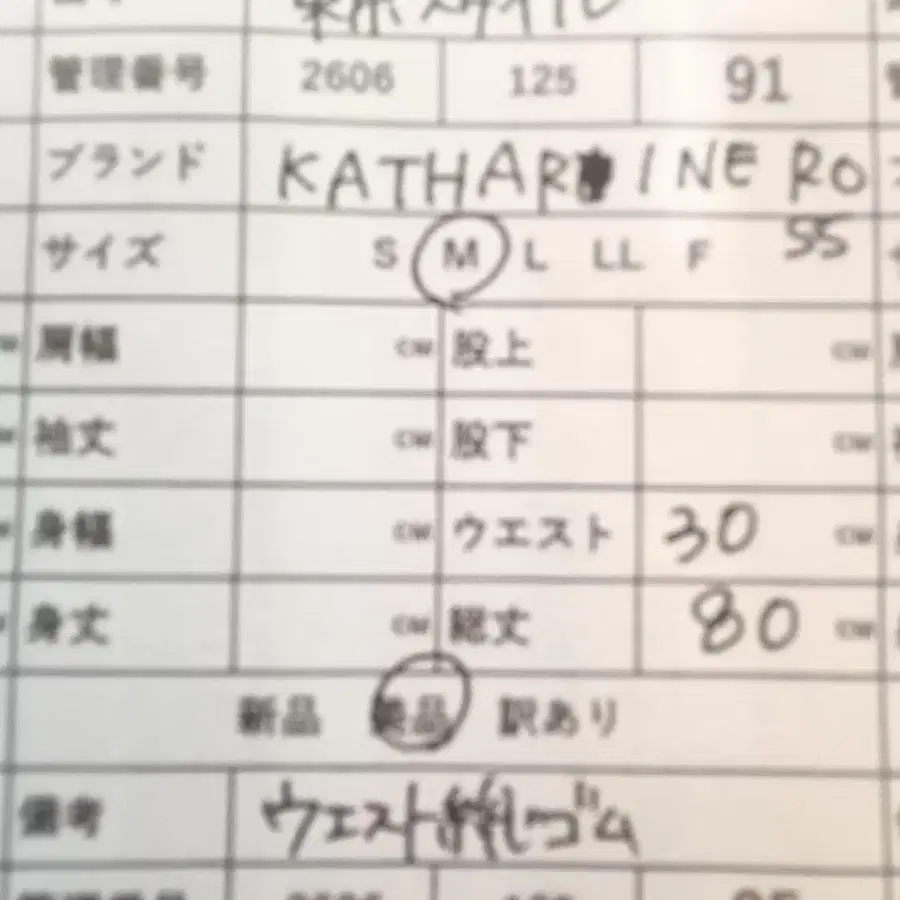 管理番号 2606 125 91
ブランド KATHARINE RO
サイズ S M L LL F SS
肩幅 cm 股上 cm
袖丈 cm 股下 cm
身幅 cm ウエスト 30 cm
身丈 cm 総丈 80 cm
新品 美品 訳あり
備考 ウエスト 紐 ゴム
管理番号